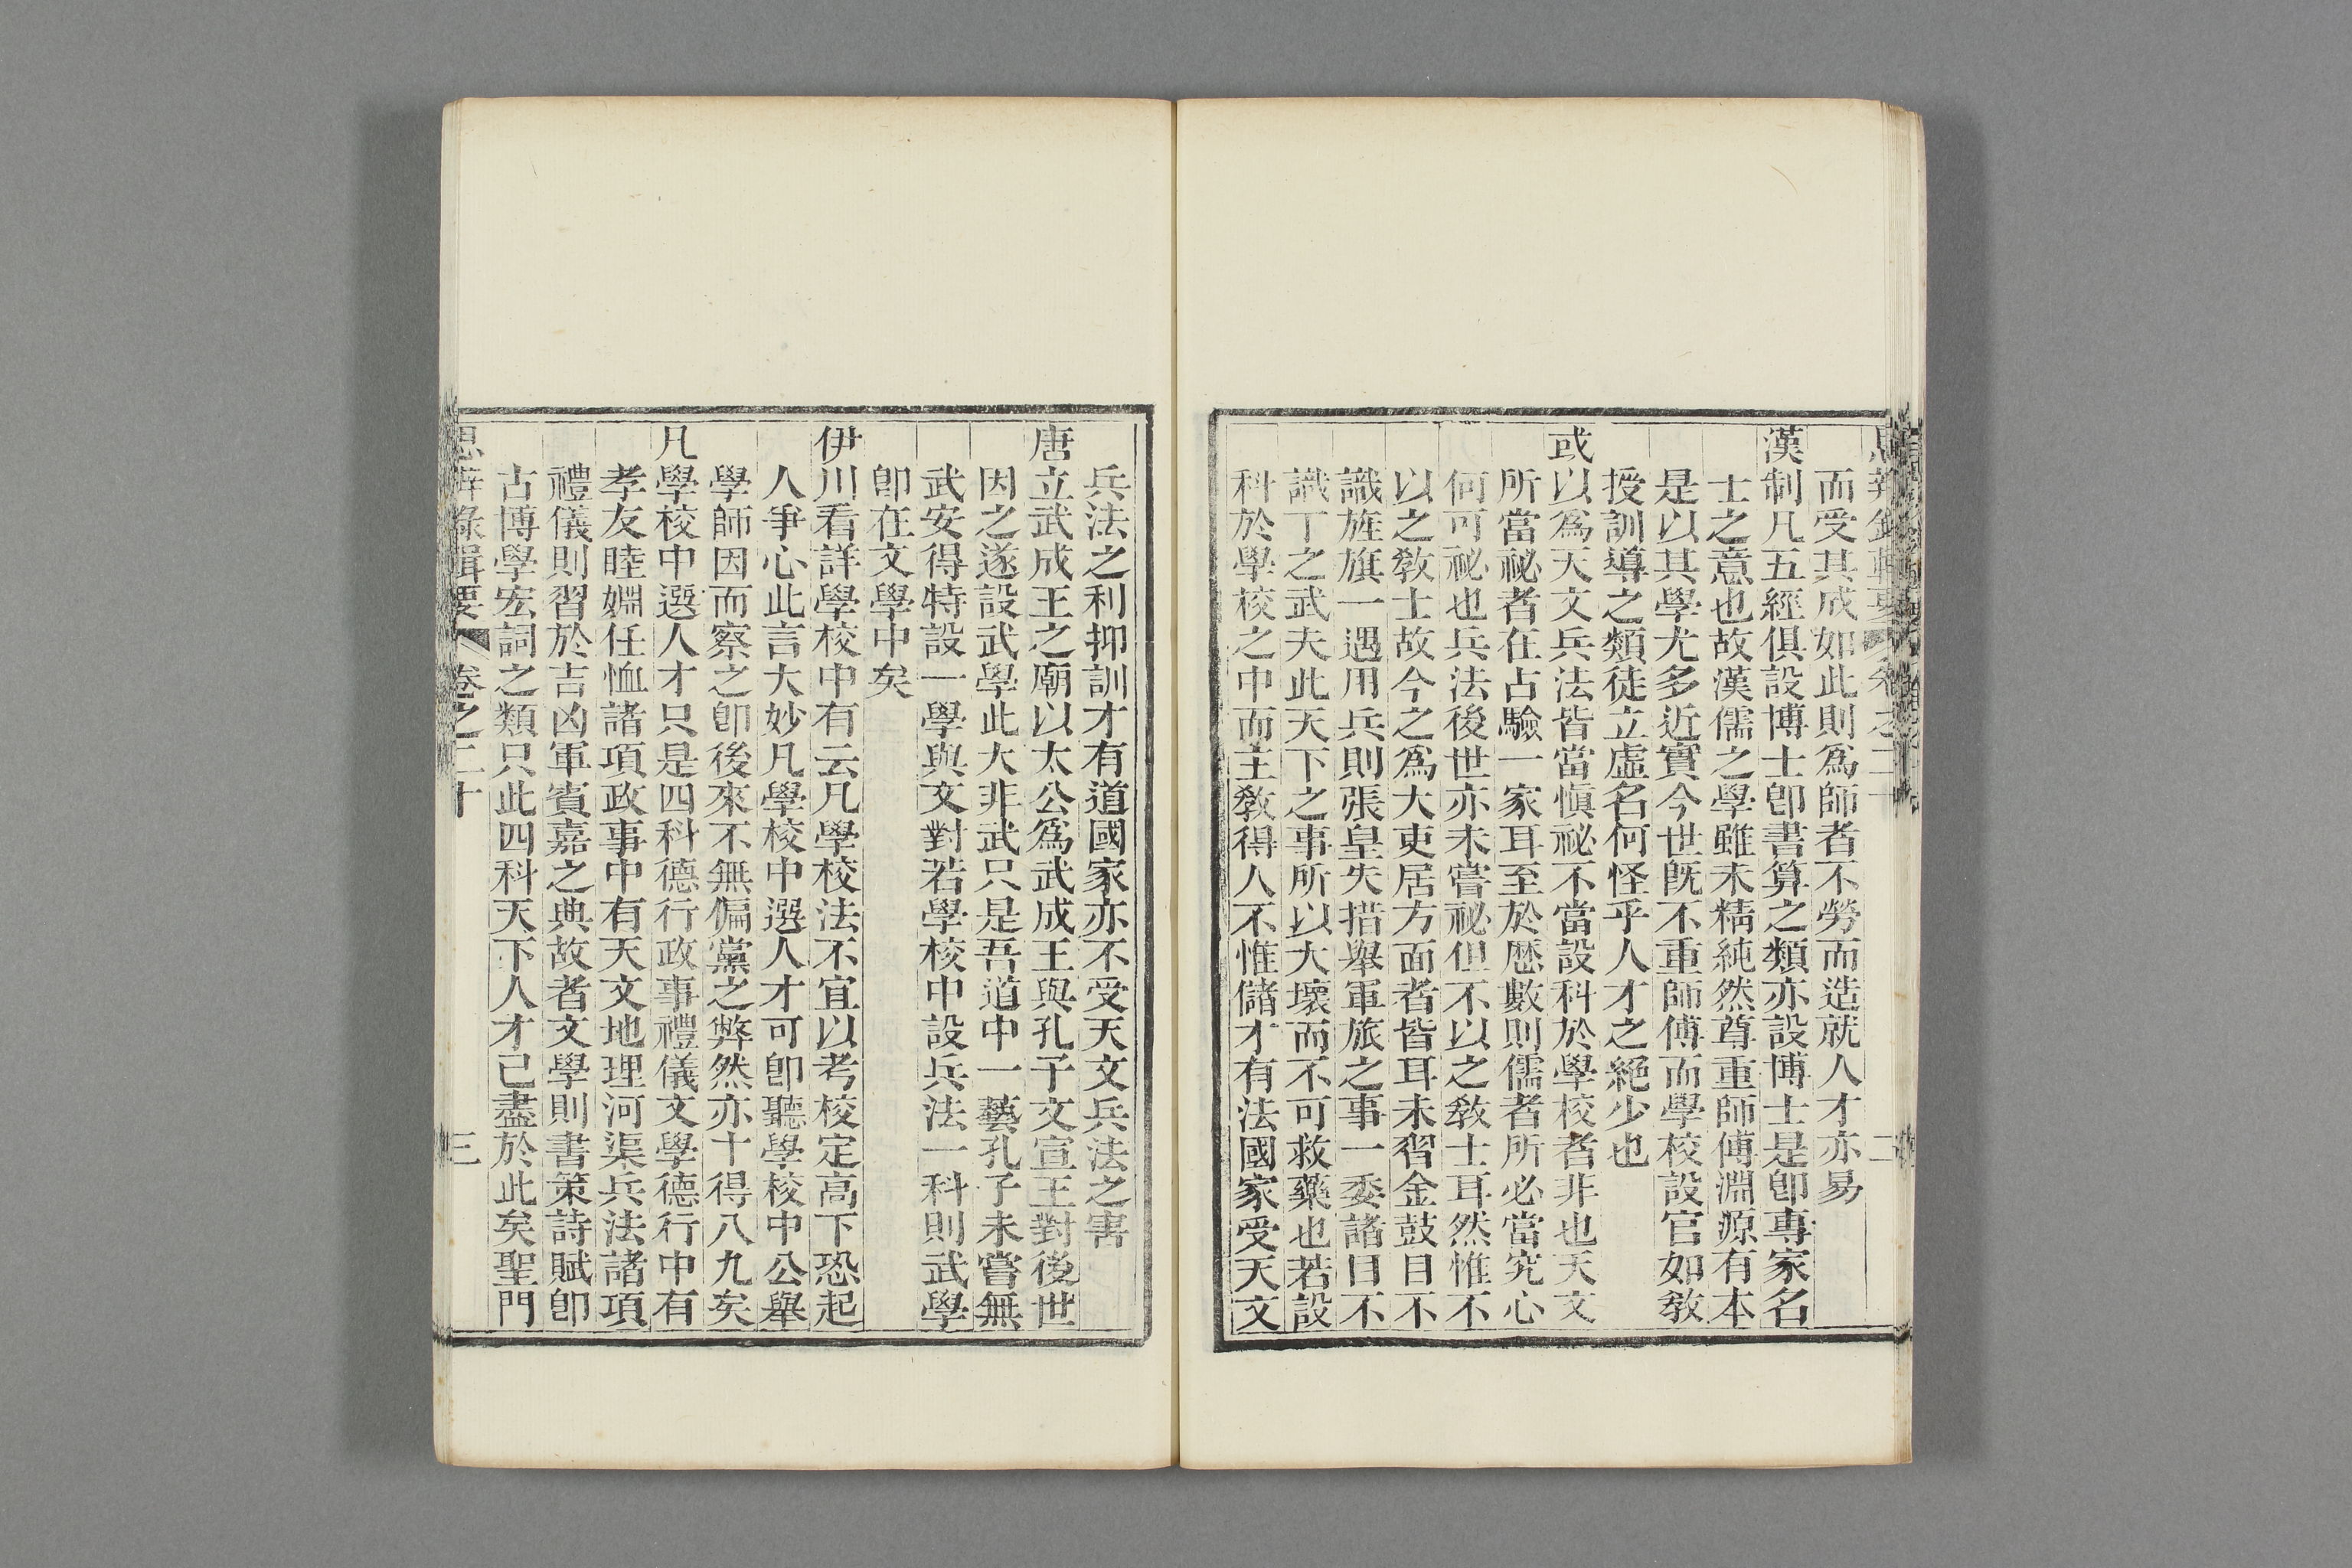 而受其成如此則爲師者不勞而造就人才亦易
漢制凡五經俱設博士卽書算之類亦設博士是卽專家名
士之意也故漢儒之學雖未精純然尊重師傅淵源有本
是以其學尤多近實今世旣不重師傅而學校設官如敎
授訓導之類徒立虛名何怪乎人才之絕少也
或以爲天文兵法皆當愼祕不當設科於學校者非也天文
所當祕者在占驗一家耳至於歷數則儒者所必當究心
何可祕也兵法後世亦未嘗祕但不以之敎士耳然惟不
以之敎士故今之爲大吏居方面者皆耳未習金鼓目不
識旌旗一遇用兵則張皇失措舉軍旅之事一委諸目不
識丁之武夫此天下之事所以大壞而不可救藥也若設
科於學校之中而主敎得人不惟儲才有法國家受天文
兵法之利抑訓才有道國家亦不受天文兵法之害
唐立武成王之廟以太公爲武成王與孔子文宣王對後世
因之遂設武學此大非武只是吾道中一藝孔子未嘗無
武安得特設一學與文對若學校中設兵法一科則武學
卽在文學中矣
伊川看詳學校中有云凡學校法不宜以考校定高下恐起
人爭心此言大妙凡學校中選人才可卽聽學校中公舉
學師因而察之卽後來不無偏黨之弊然亦十得八九矣
凡學校中選人才只是四科德行政事禮儀文學德行中有
孝友睦婣任恤諸項政事中有天文地理河渠兵法諸項
禮儀則習於吉凶軍賓嘉之典故者文學則書策詩賦卽
古博學宏詞之類只此四科天下人才已盡於此矣聖門
思辨錄輯要 卷之二十 三